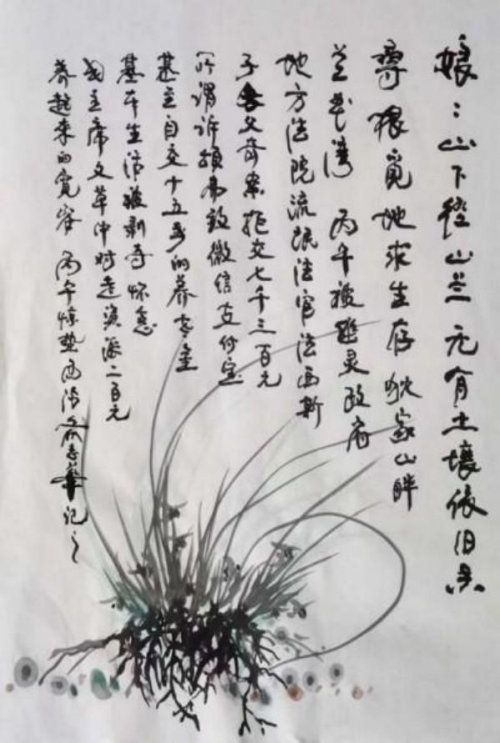 娘：山下徑山兰 无有土壤依旧
尋根覓地求生存 狄家山畔
兰花湾 丙午 灵政府
地方法院流氓法官法西斯
子 父奇案拒交七千三百元
所谓诉 致微信支付宝
甚至自交十五年的养老金
基本生活被剥夺怀念
主席文革中对走资派二百元
养起来的宽容 丙午惊蛰 记之